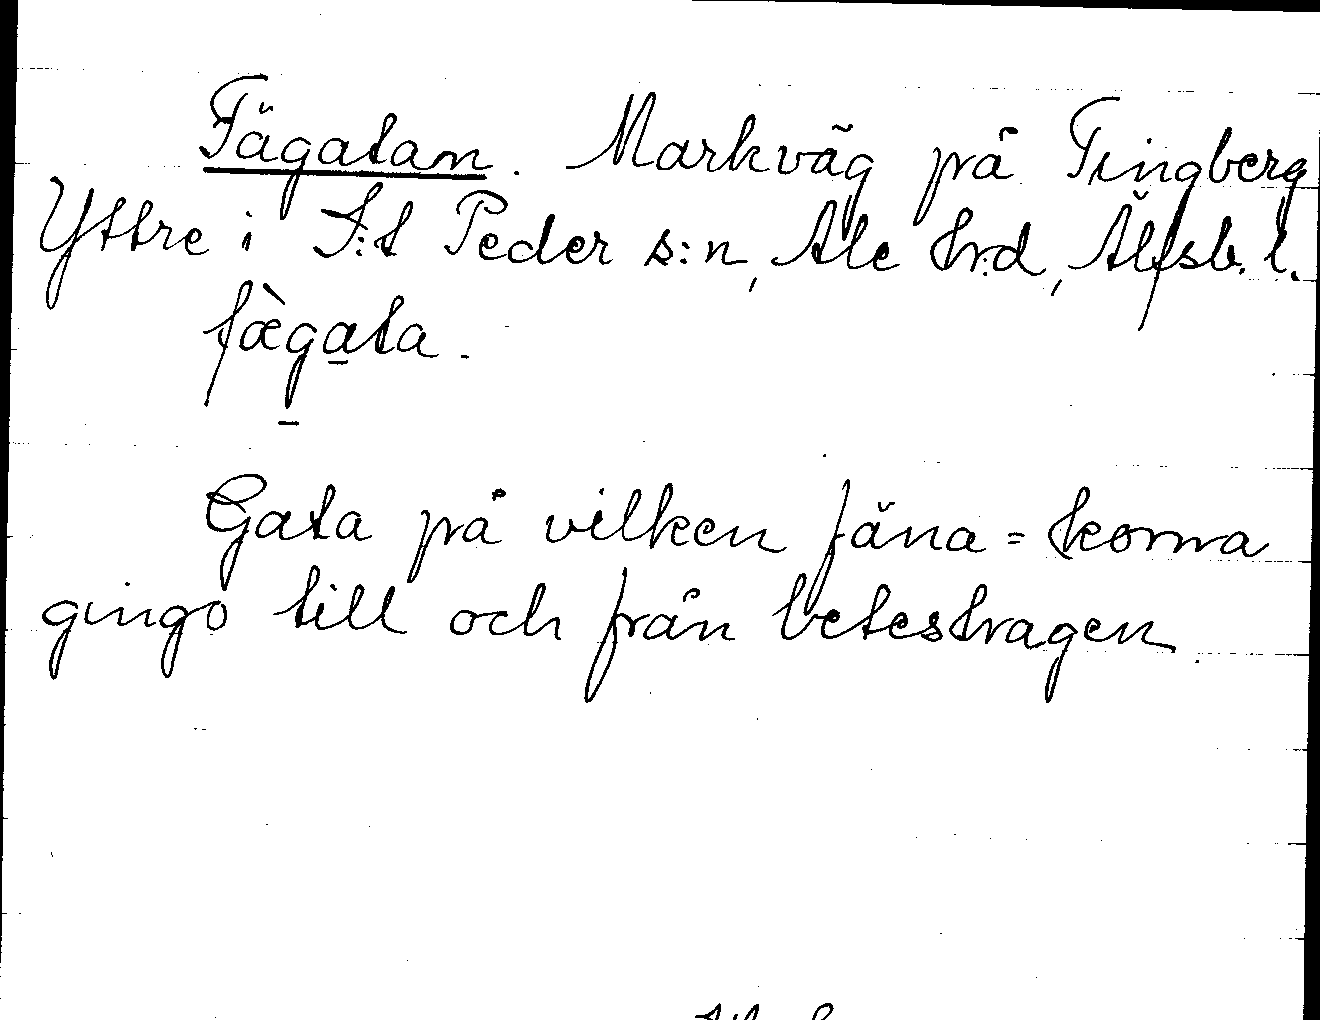 Fägatan. Markväg på Tingberg
Yttre i S:t Peder s:n, Ale hrd, Älfsb. l.
fàgata.
Gata på vilken fäna = korna
gingo till och från beteshagen